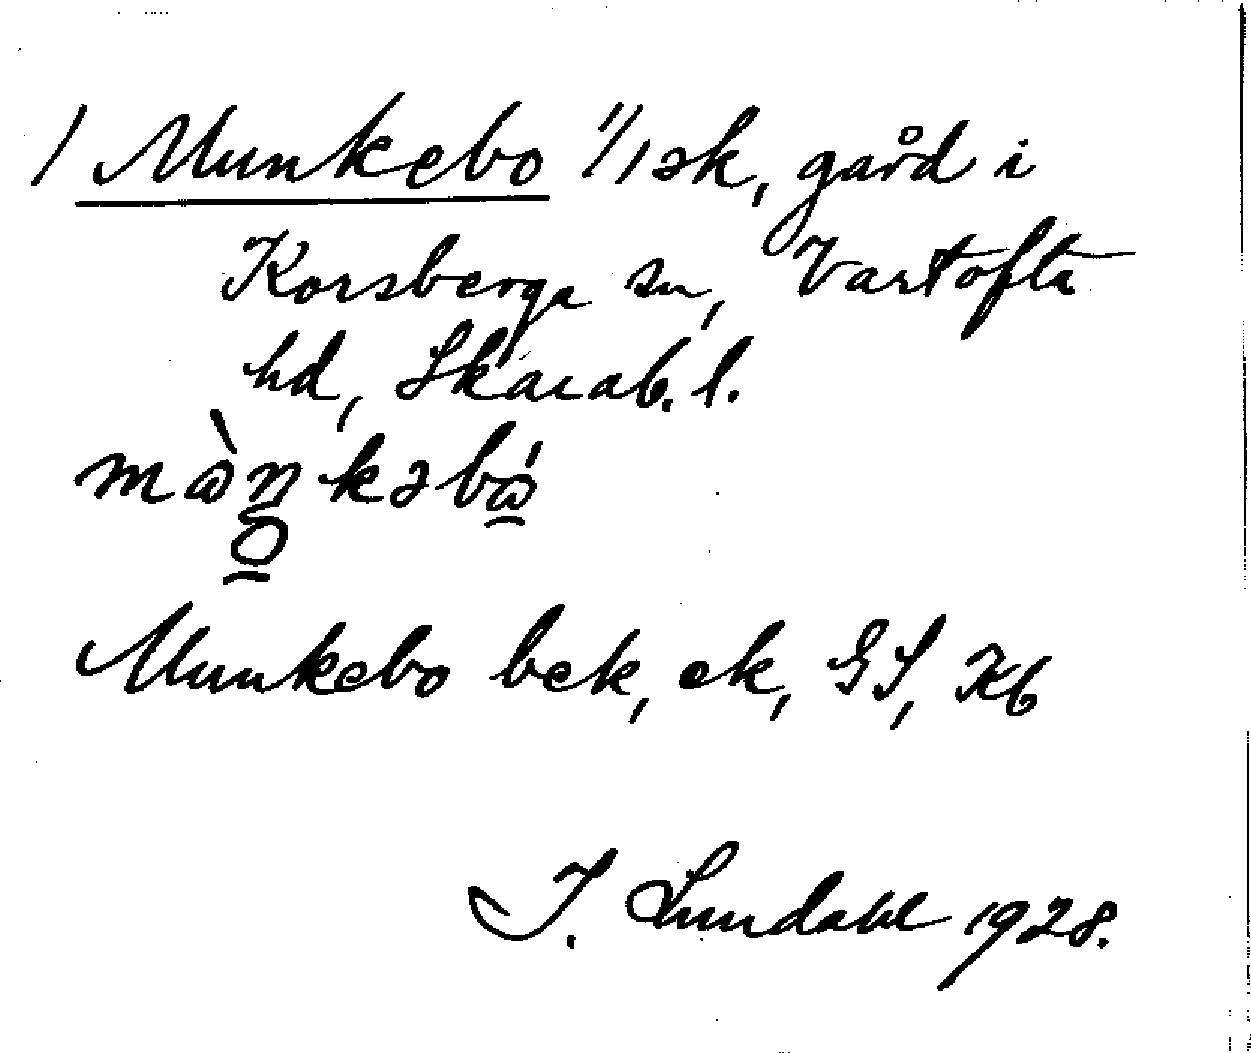 / Munkebo 1/1 sk, gård i
Korsberga sn, Vartofta
hd, Skarab. l.
mꜵ̀ŋkəbꜵ́
o
Munkebo bek, ek, GS, Kb
I. Lundahl 1928.